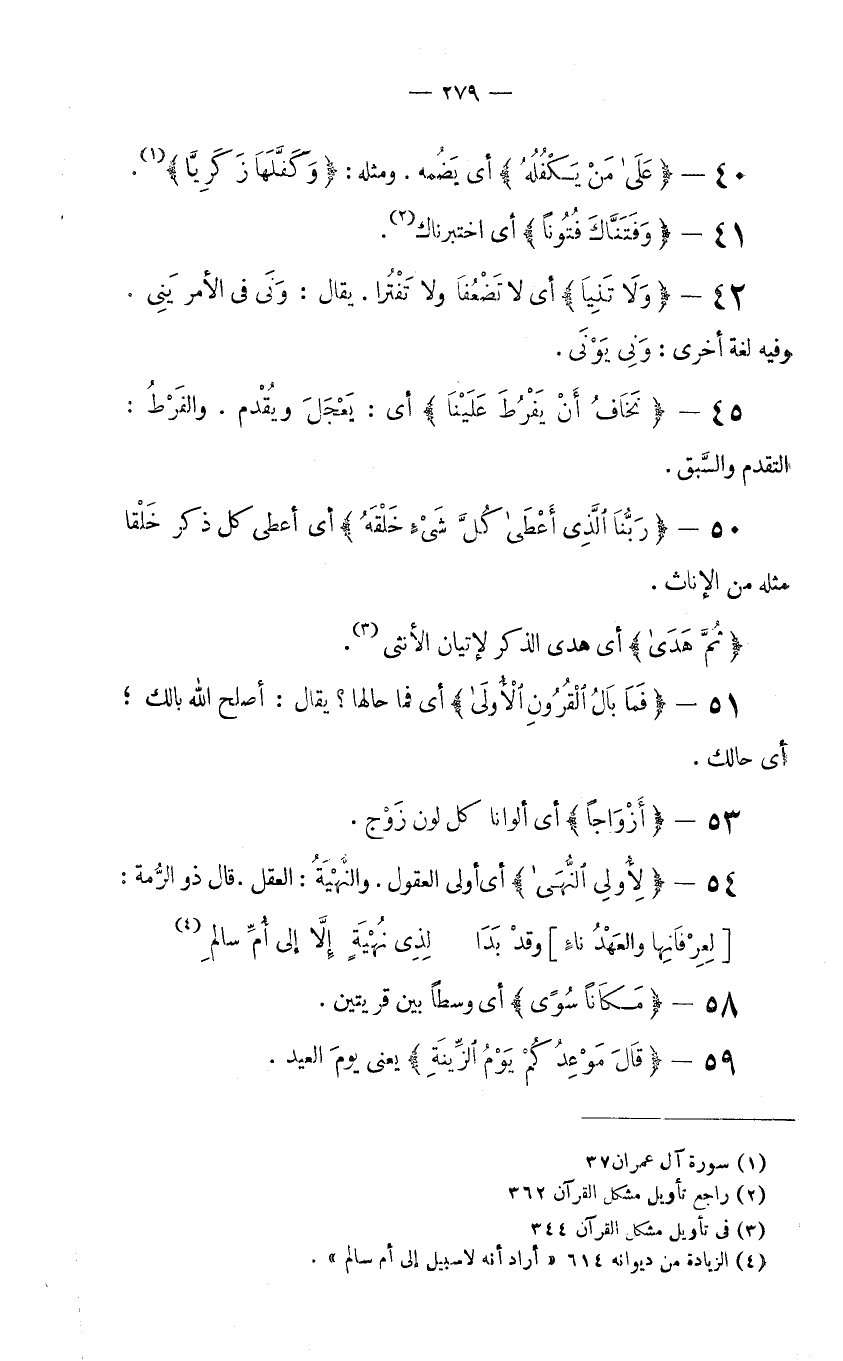 — ٢٧٩ —
٤٠ — ﴿ عَلَىٰ مَنْ يَكْفُلُهُ ﴾ أى يَضُمه . ومثله : ﴿ وَكَفَّلَهَا زَكَرِيَّا ﴾(١) .
٤١ — ﴿ وَفَتَنَّاكَ فُتُونًا ﴾ أى اختبرناك(٢) .
٤٢ — ﴿ وَلَا تَنِيَا ﴾ أى لا تَضْعُفَا ولا تَفْتُرا . يقال : وَنَى فى الأمر يَنِي .
وفيه لغة أخرى : وَنِي يَوْنَى .
٤٥ — ﴿ نَخَافُ أَنْ يَفْرُطَ عَلَيْنَا ﴾ أى : يَعْجَلَ ويُقْدم . والفَرْطُ :
التقدم والسَّبق .
٥٠ — ﴿ رَبُّنَا ٱلَّذِى أَعْطَىٰ كُلَّ شَىْءٍ خَلْقَهُ ﴾ أى أعطى كل ذكر خَلْقا
مثله من الإناث .
﴿ ثُمَّ هَدَىٰ ﴾ أى هدى الذكر لإتيان الأنثى(٣) .
٥١ — ﴿ فَمَا بَالُ ٱلْقُرُونِ ٱلْأُولَىٰ ﴾ أى فما حالها ؟ يقال : أصلح الله بالك ؛
أى حالك .
٥٣ — ﴿ أَزْوَاجًا ﴾ أى ألوانا كل لون زَوْج .
٥٤ — ﴿ لِأُولِي ٱلنُّهَىٰ ﴾ أى أولى العقول . والنُّهْيَةُ : العقل . قال ذو الرُّمة :
[ لِعِرْفَانِها والعَهْدُ ناءٍ ] وقدْ بَدَا لِذِى نُهْيَةٍ إلَّا إلى أُمِّ سالمِ(٤)
٥٨ — ﴿ مَكَانًا سُوًى ﴾ أى وسطاً بين قريتين .
٥٩ — ﴿ قَالَ مَوْعِدُكُمْ يَوْمُ ٱلزِّينَةِ ﴾ يعنى يومَ العيد .
(١) سورة آل عمران ٣٧
(٢) راجع تأويل مشكل القرآن ٣٦٢
(٣) فى تأويل مشكل القرآن ٣٤٤
(٤) الزيادة من ديوانه ٦١٤ « أراد أنه لاسبيل إلى أم سالم » .